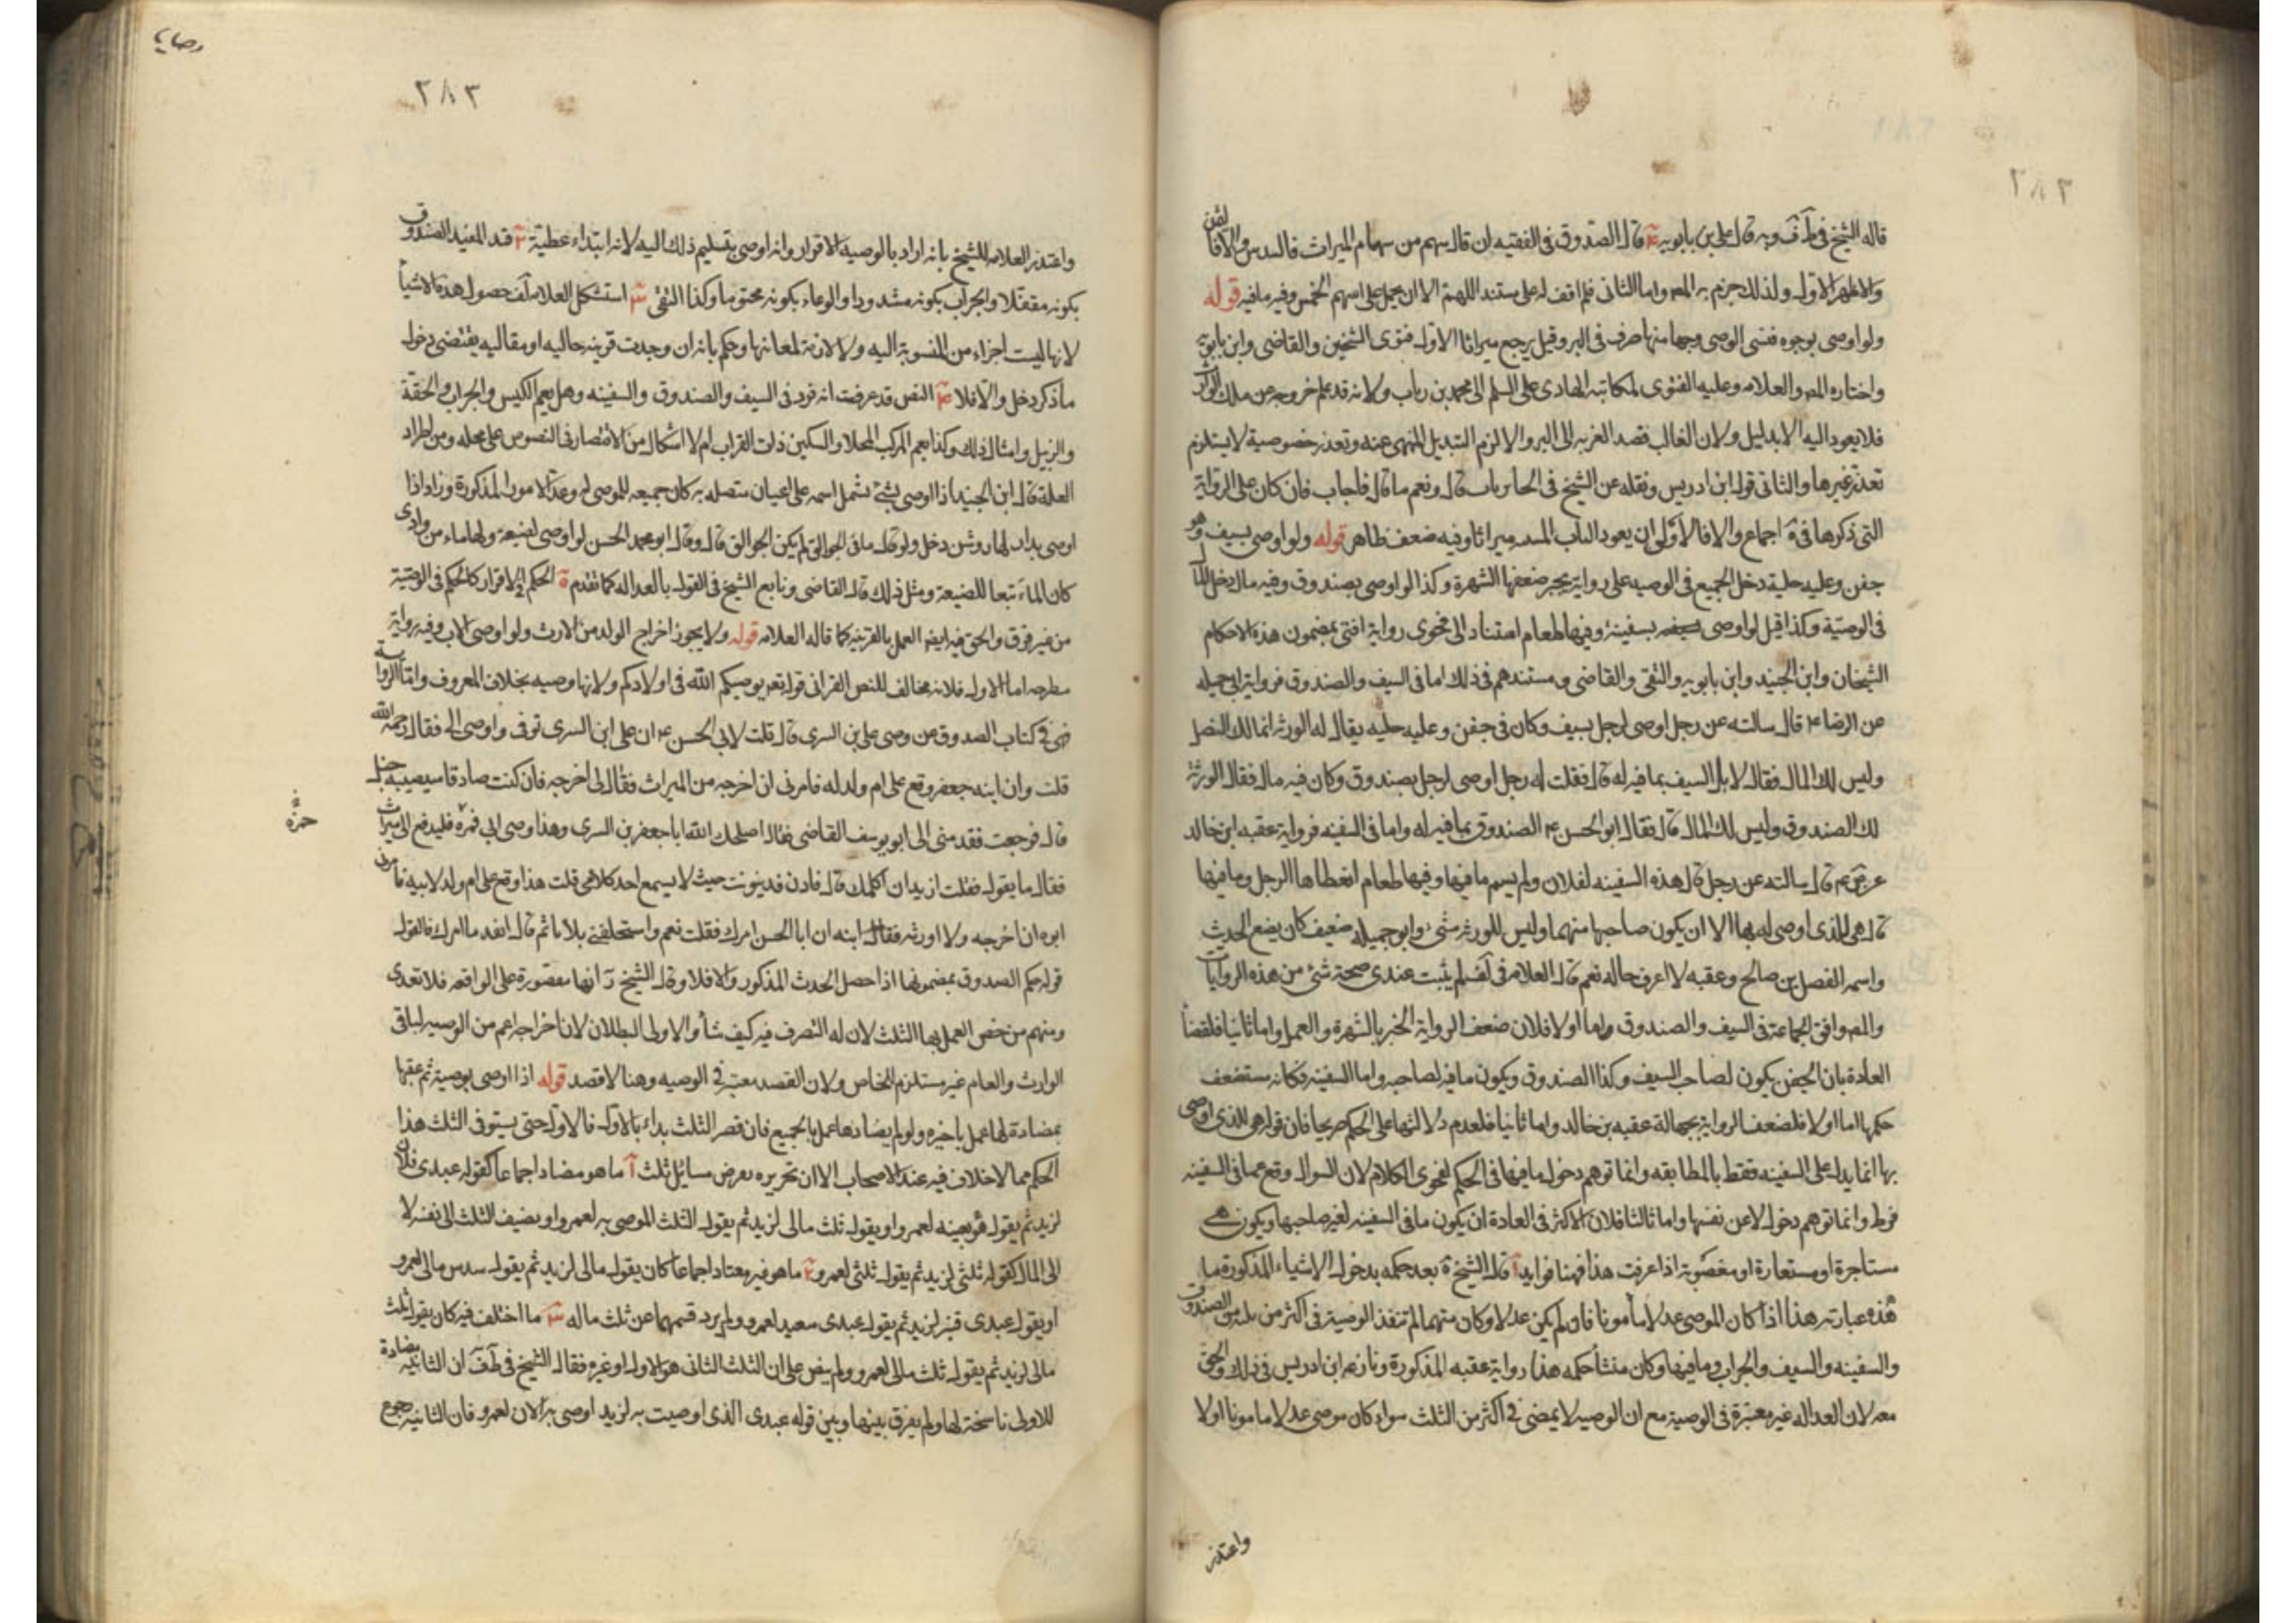 ٢٨٢
قاله الشيخ في ط وف وبه قال علي بن بابويه قال الصدوق في الفقيه ان قال سهم من سهام الميراث فالسدس والا فالثمن
والاظهر الاول ولذلك جزم به المص واما الثاني فلم اقف له على مستند اللهم الا ان يحمل على اسهم الخمس وفيه ما فيه قوله
ولو اوصى بوجوه فنسى الوصى وجها منها صرف في البر وقيل يرجع ميراثا الاول فتوى الشيخين والقاضي وابن بابويه
واختاره المص والعلامه وعليه الفتوى لمكاتبه الهادى على السلم الى محمد بن رباب ولانه قد علم خروجه عن ملك الوارث
فلا يعود اليه الا بدليل ولان الغالب قصد القربه الى البر والا لزم التبديل المنهى عنه وتعذر خصوصية لا يستلزم
تعذر غيرها والثاني قول ابن ادريس ونقله عن الشيخ في قال ونعم ما قال فاجاب فان كان على الرواية
التي ذكرها في ية اجماع والا فالاولى ان يعود ميراثا وفيه ضعف ظاهر قوله ولو اوصى بسيف وهو
جفن وعليه حلية دخل الجميع في الوصيه على رواية يجبر ضعفها الشهرة وكذا لو اوصى بصندوق وفيه مال دخل المال
في الوصية وكذا قيل لو اوصى بسفينة وفيها طعام استنادا الى فحوى رواية افتى بمضمون هذه الاحكام
الشيخان وابن الجنيد وابن بابويه والتقى والقاضي ومستندهم في ذلك اما في السيف والصندوق فرواية ابى جميله
عن الرضا ع قال سالته عن رجل اوصى لرجل بسيف وكان في جفن وعليه حليه يقال له الورثه انما لك النصل
وليس لك المال فقال لا بل السيف بما فيه له قال فقلت له رجل اوصى لرجل بصندوق وكان فيه مال فقال الورثة
لك الصندوق وليس لك المال قال فقال ابو الحسن ع الصندوق بما فيه له واما في السفينه فرواية عقبه ابن خالد
عن ص ع قال سالته عن رجل قال هذه السفينه لفلان ولم يسم ما فيها وفيها طعام اتعطاها الرجل وما فيها
قال هي للذى اوصى له بها الا ان يكون صاحبها متهما وليس للورثه شئ وابو جميله ضعيف كان يضع الحديث
واسمه المفضل بن صالح وعقبه لا اعرف حاله نعم قال العلامه في لف لم يثبت عندى صحة شئ من هذه الروايات
والمص وافق الجماعة في السيف والصندوق واما اولا فلان ضعف الرواية الجبر بالشهرة والعمل واما ثانيا فلقضاء
العادة بان الجفن يكون لصاحب السيف وكذا الصندوق ويكون ما فيه لصاحبه واما السفينه فكانه ستضعف
حكمها اما اولا فلضعف الرواية بجهالة عقبه بن خالد واما ثانيا فلعدم دلالتها على الحكم صريحا فان قوله هي للذى اوصى
بها انما يدل على السفينه فقط بالمطابقه وانما توهم دخول ما فيها في الحكم لفحوى الكلام لان السوال وقع عما في السفينه
فرط وانما توهم دخول لا عن نفسها واما ثالثا فلان الاكثر في العادة ان يكون ما في السفينه لغير صاحبها ويكون هى
مستاجرة او مستعارة او مغصوبة اذا عرفت هذا فهنا فوايد آ قال الشيخ ية بعد حكمه بدخول الاشياء المذكورة ما
هذه عبارته هذا اذا كان الموصى عدلا مأمونا فان لم يكن عدلا وكان متهما لم تنفذ الوصية في اكثر من ثلثه من الصندوق
والسفينه والسيف والجراب وما فيها وكان منشأ حكمه هذا رواية عقبه المذكورة ونازعه ابن ادريس في ذلك والحق
معه لان العداله غير معتبرة في الوصية مع ان الوصيه لا يمضى في اكثر من الثلث سواء كان موصى عدلا مامونا او لا
واعتذر
وصايا
٢٨٣
واعتذر العلامه للشيخ بانه اراد بالوصيه الاقرار وانه اوصى بتسليم ذلك اليه لا انه ابتداء عطية ٢ قيد المفيد الصندوق
بكونه مقفلا والجراب بكونه مشدودا والوعاء بكونه مختوما وكذا التقى ٣ استشكل العلامه في لف حصول هذه الاشياء
لانها ليست اجزاء من المنسوبة اليه ولا لازمة لمعانها وحكم بانه ان وجدت قرينه حاليه او مقاليه يقتضى دخول
ما ذكر دخل والا فلا ٤ النص قد عرفت انه ورد في السيف والصندوق والسفينه وهل يعم الكيس والجراب والحقة
والزبيل وامثال ذلك وكذا يعم المركب المحلا والسكين ذات القراب ام لا اشكال من الاقتصار في النصوص على محله ومن اطراد
العلة قال ابن الجنيد اذا اوصى بشئ يشمل اسمه على اعيان متصله به كان جميعه للموصى له وعد الامور المذكورة وزاد اذا
اوصى بدار لها روشن دخل ولو قال ما في الجوالق لم يكن الجوالق قال وقال ابو محمد الحسن لو اوصى لضيعة ولها ماء من وادى
كان الماء تبعا للضيعة ومثل ذلك قال القاضي وتابع الشيخ في القول بالعداله كما تقدم ٥ الحكم في الاقرار كالحكم في الوصية
من غير فرق والحق فيه ايضا العمل بالقرينة كما قاله العلامه قوله ولا يجوز اخراج الولد من الارث ولو اوصى الاب وفيه رواية
مطرحه اما الاول فلانه مخالف للنص القراني قوله تعه يوصيكم الله في اولادكم ولانها وصيه بخلاف المعروف واما الرواية
فهى في كتاب الصدوق عن وصى على بن السرى قال قلت لابى الحسن ع ان على ابن السرى توفى واوصى الى فقال رحمه الله
قلت وان ابنه جعفر وقع على ام ولد له فامرنى ان اخرجه من الميراث فقال لى اخرجه فان كنت صادقا سيصيبه خبل
قال فرجعت فقدمنى الى ابو يوسف القاضي فقال اصلحك الله انا جعفر بن السرى وهذا وصى ابى فمره فليدفع الى ميراث
فقال ما يقول فقلت اريد ان اكلمك قال فادن فدنوت حيث لا يسمع احد كلامى قلت هذا وقع على ام ولد لابيه فامرنى
ابوه ان اخرجه ولا اورثه فقال الله ان ابا الحسن امرك فقلت نعم واستحلفنى ثلاثا ثم قال انفذ ما امرك فالقول
قوله حكم الصدوق بمضمونها اذا حصل الحدث المذكور والا فلا وقال الشيخ ره انها مقصورة على الواقعه فلا تعدى
ومنهم من خص العمل بها الثلث لان له التصرف فيه كيف شاء والاولى البطلان لان اخراجه اعم من الوصيه لباقى
الوارث والعام غير مستلزم للخاص ولان القصد معتبر في الوصيه وهنا لا قصد قوله اذا اوصى بوصية ثم عقبها
بمضادة لها عمل باخيره ولو لم يضادها عمل بالجميع فان قصر الثلث بداء بالاول فالاول حتى يستوفى الثلث هذا
الحكم مما لا خلاف فيه عند الاصحاب الا ان تحريره بعرض مسائل ثلث آ ما هو مضاد اجماعا كقوله عبدى فلان
لزيد ثم يقول هو بعينه لعمرو او يقول ثلث مالى لزيد ثم يقول الثلث الموصى به لعمرو او يضيف الثلث الى نفسه لا
الى المال كقوله ثلثى لزيد ثم يقول ثلثى لعمرو ٢ ما هو فيه معتاد اجماعا كان يقول مالى لزيد ثم يقول سدس مالى لعمرو
او يقول عبدى قنبر لزيد ثم يقول عبدى سعيد لعمرو ولم يزد قسمهما عن ثلث ماله ٣ ما اختلف فيه كان يقول ثلث
مالى لزيد ثم يقول ثلث مالى لعمرو ولم ينص على ان الثلث الثانى هو الاول او غيره فقال الشيخ في ط ف ان الثانيه مضادة
للاولى ناسخة لها ولم يفرق بينها وبين قوله عبدى الذى اوصيت به لزيد اوصى به الان لعمرو فان الثانيه رجوع
حمزه